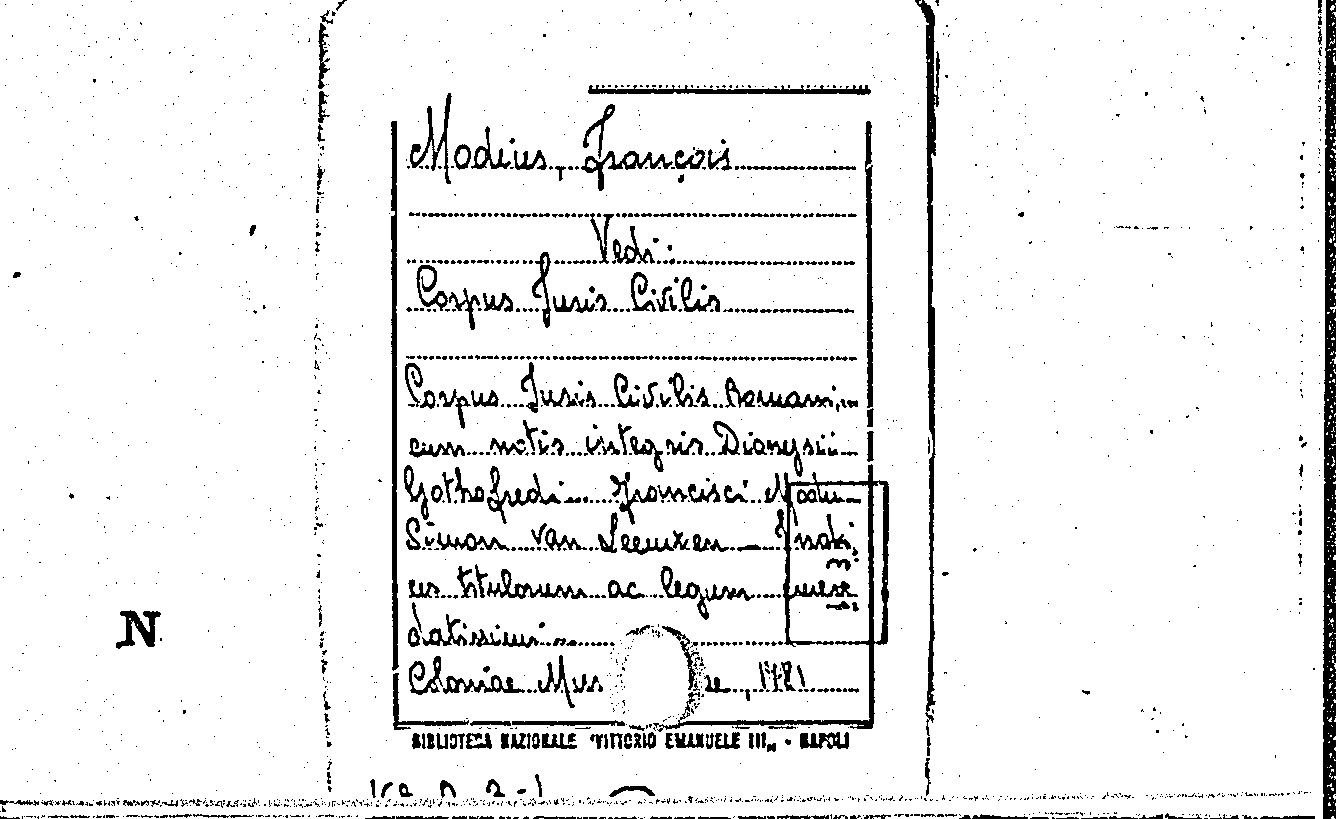 Modius, François
Vedi:
Corpus Juris Civilis
Corpus Juris Civilis Romani,
cum notis integris Dionysii
Gothofredi... Francisci Modii
Simon van Leeuwen
us titulorum ac legum
datissimi
N
Coloniae Mun se, 1781
BIBLIOTECA NAZIONALE "VITTORIO EMANUELE III„ - NAPOLI